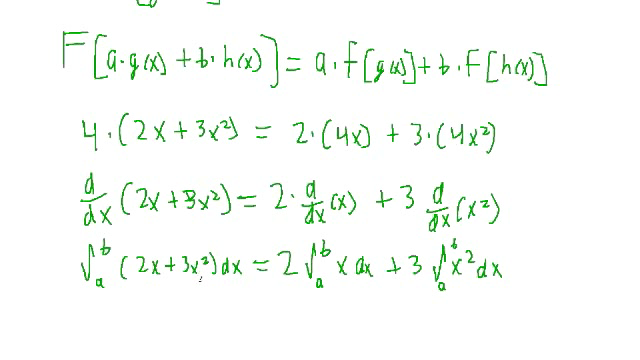 F[a·g(x) + b·h(x)] = a·f[g(x)] + b·F[h(x)]
4·(2x + 3x²) = 2·(4x) + 3·(4x²)
d/dx (2x + 3x²) = 2·d/dx (x) + 3 d/dx (x²)
∫ₐᵇ (2x + 3x²) dx = 2 ∫ₐᵇ x dx + 3 ∫ₐᵇ x² dx